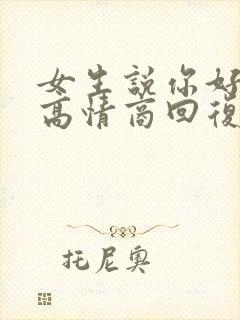 女生説你好
高情商回復
托尼奧